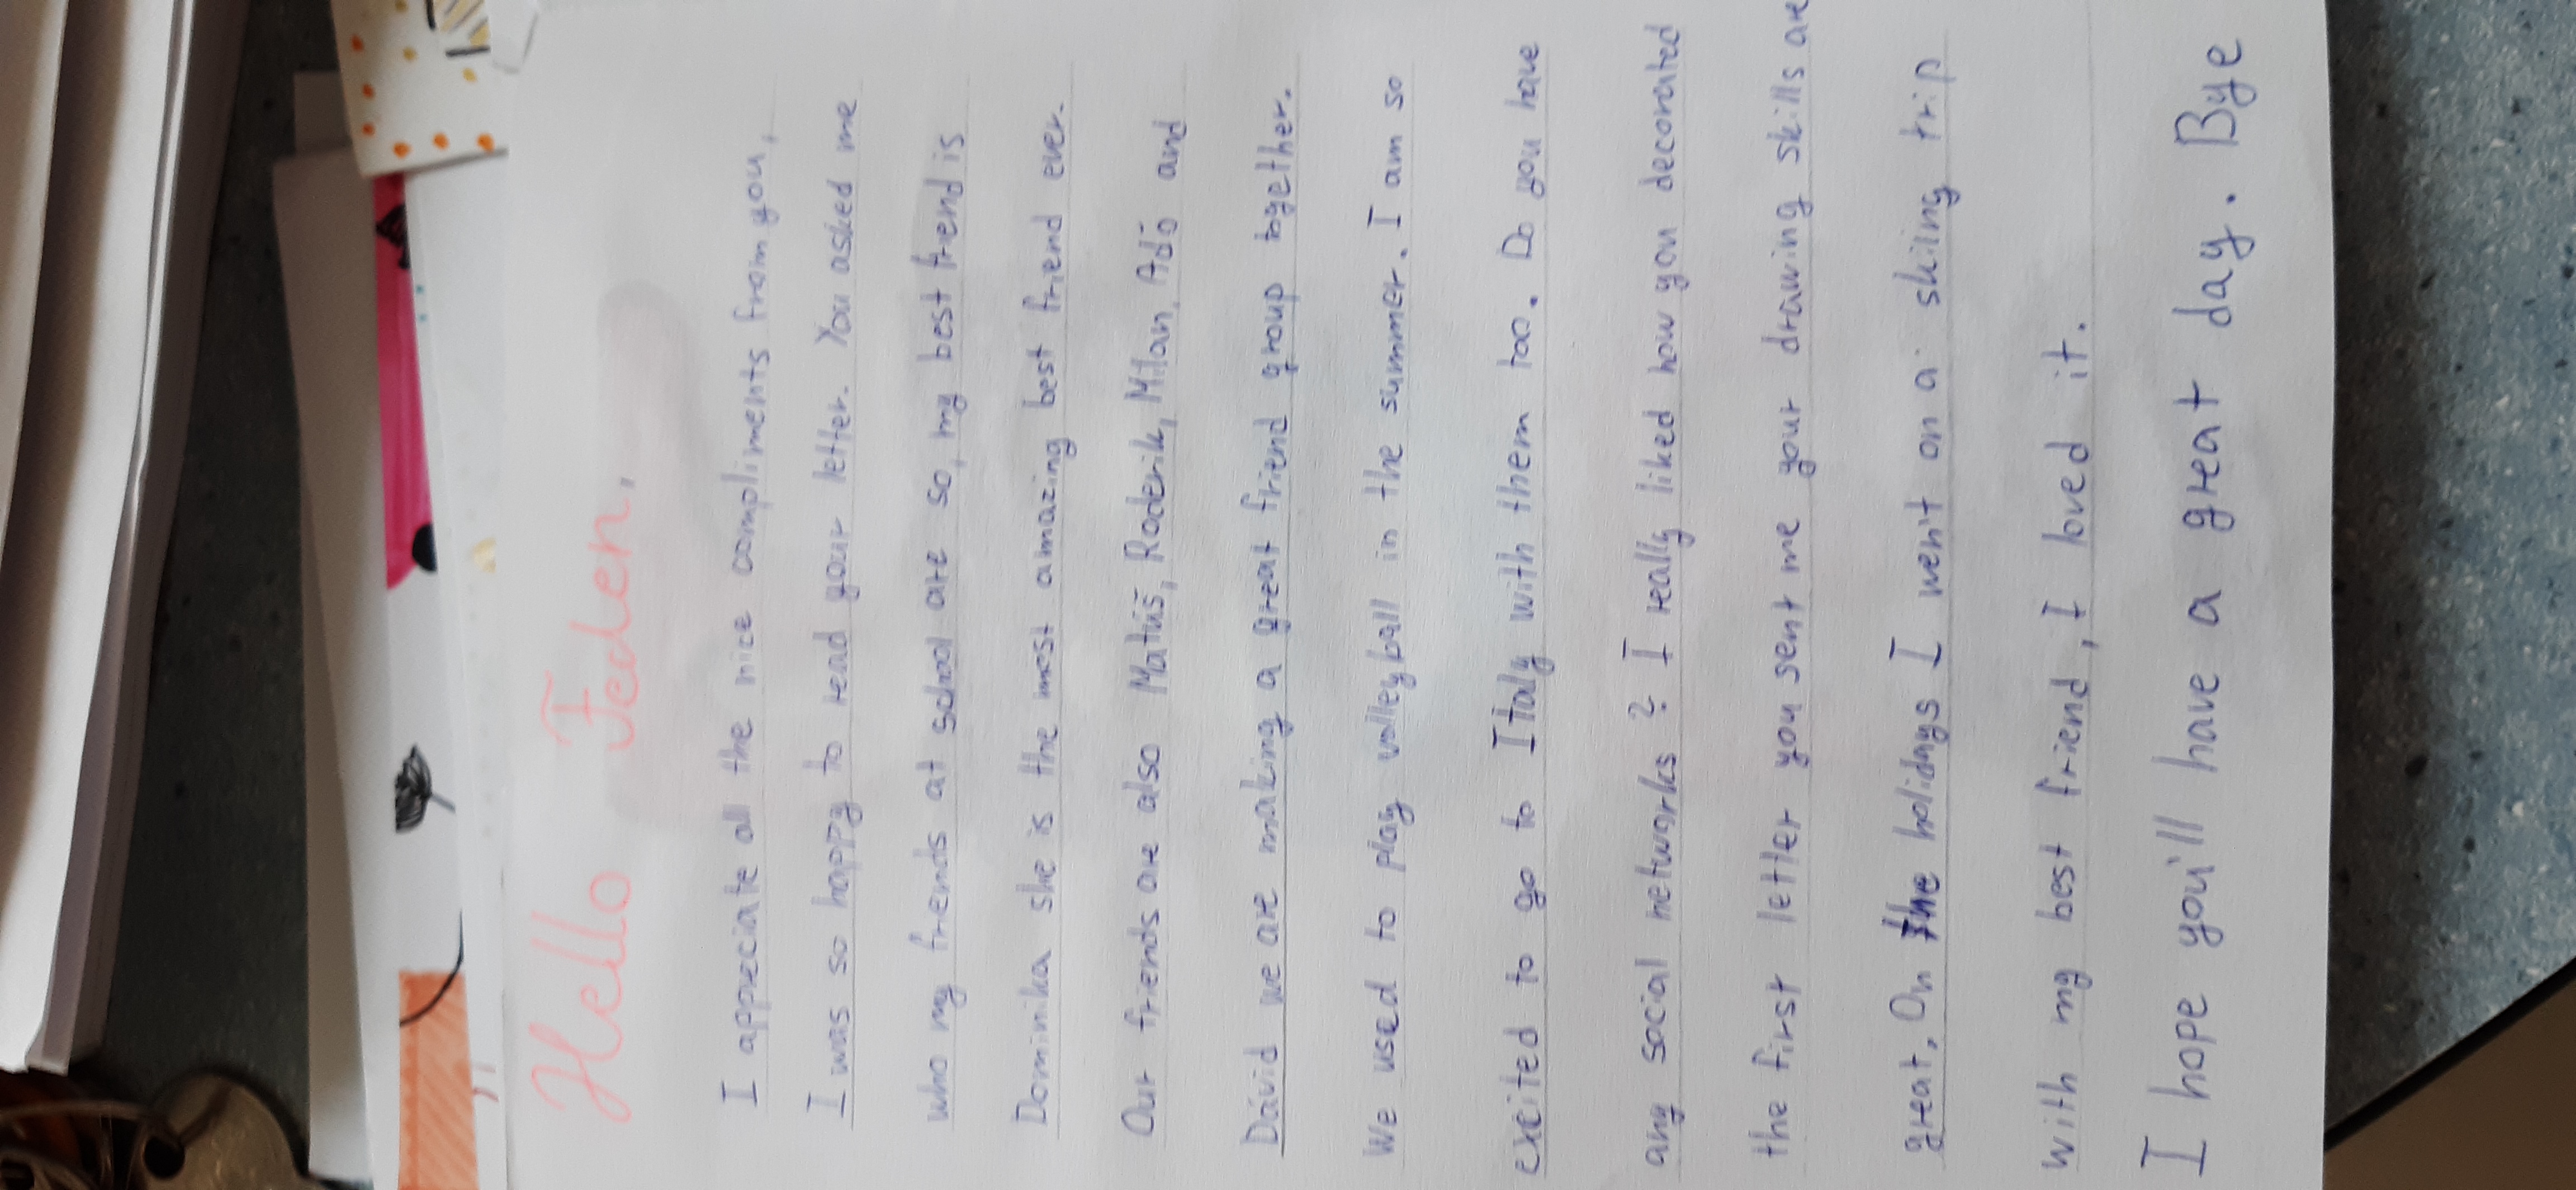 Hello Feden,
I appreciate all the nice compliments from you,
I was so happy to read your letter. You asked me
who my friends at school are so, my best friend is
Dominika she is the most amazing best friend ever.
Our friends are also Matúš, Roderik, Milan, Adó and
Dávid we are making a great friend group together.
We used to play volleyball in the summer. I am so
excited to go to Italy with them too. Do you have
any social networks? I really liked how you decorated
the first letter you sent me your drawing skills are
great, On the holidays I wen't on a skiing trip
with my best friend, I loved it.
I hope you'll have a great day. Bye